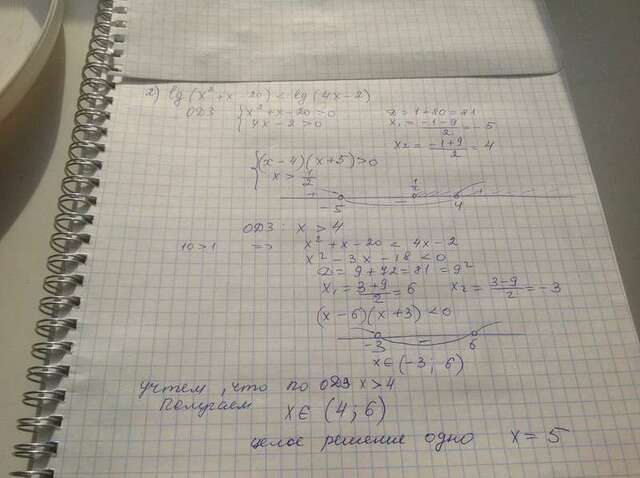 2) lg(x²+x-20) < lg(4x-2)
ОДЗ { x²+x-20>0 D=1+80=81
4x-2>0 x₁=(-1-9)/2=-5
x₂=(-1+9)/2=4
{ (x-4)(x+5)>0
x>1/2
+ 1/2 +
-5 - 4
ОДЗ: x>4
10>1 => x²+x-20 < 4x-2
x²-3x-18<0
D=9+72=81=9²
x₁=(3+9)/2=6 x₂=(3-9)/2=-3
(x-6)(x+3)<0
-3 - 6
x∈(-3; 6)
учтем, что по ОДЗ x>4
Получаем x∈(4;6)
целое решение одно x=5